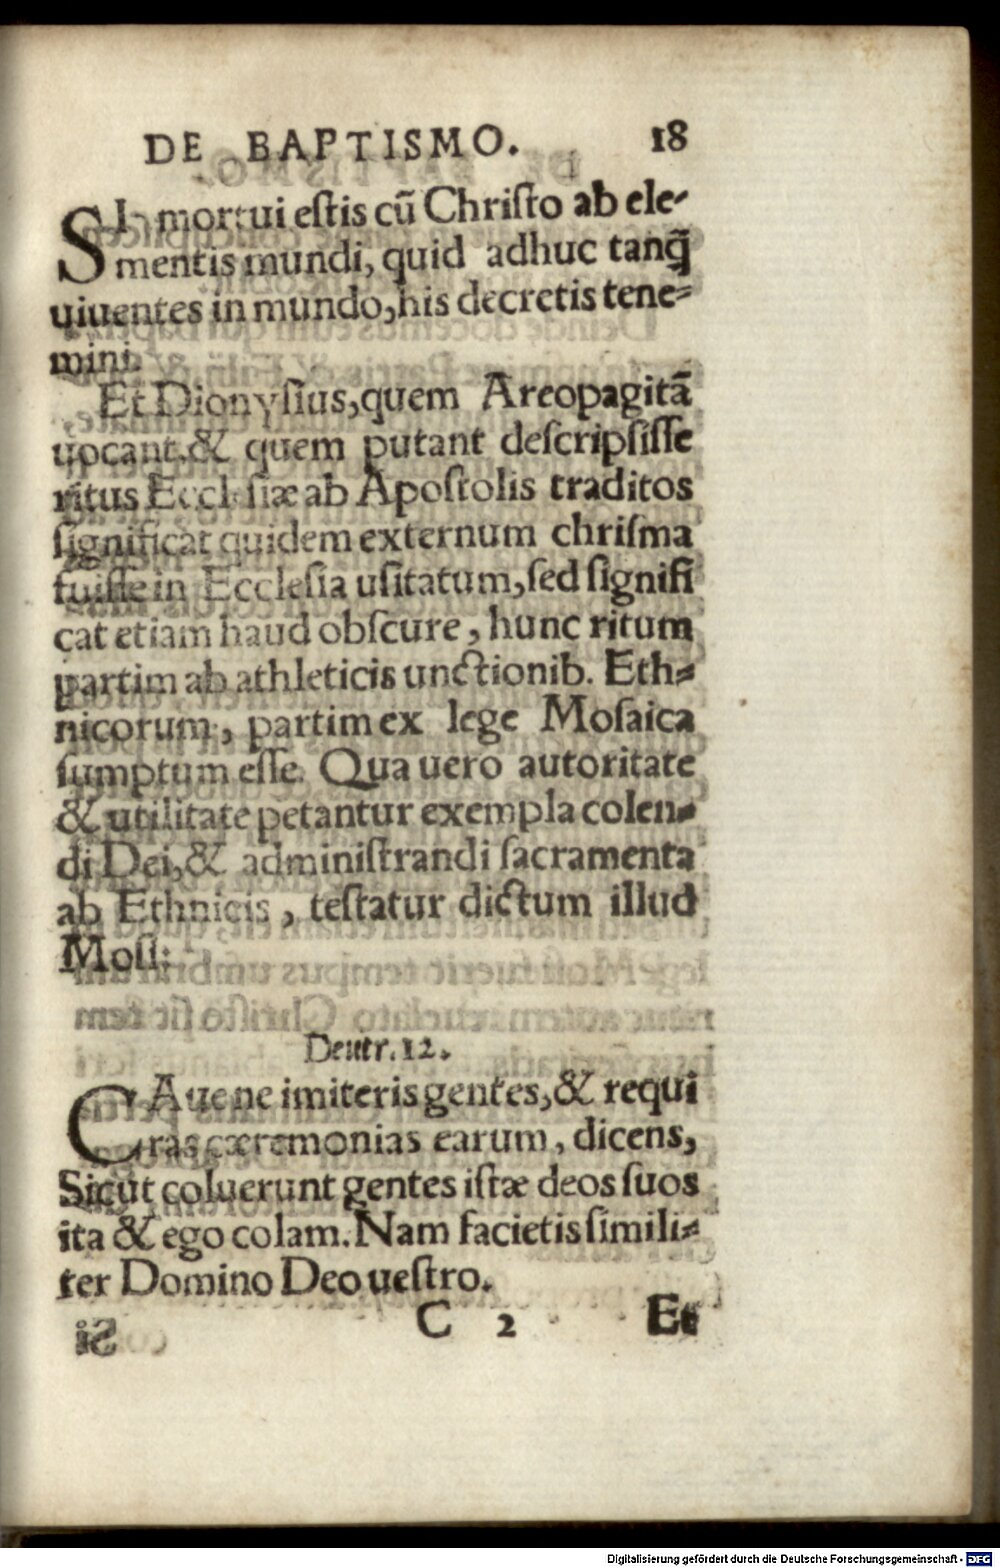 DE BAPTISMO. 18
SI mortui estis cū Christo ab ele-
mentis mundi, quid adhuc tanq̃
uiuentes in mundo, his decretis tene-
mini.
Et Dionysius, quem Areopagitā
uocant, & quem putant descripsisse
ritus Ecclesiæ ab Apostolis traditos
significat quidem externum chrisma
fuisse in Ecclesia usitatum, sed signifi
cat etiam haud obscure, hunc ritum
partim ab athleticis unctionib. Eth-
nicorum, partim ex lege Mosaica
sumptum esse. Qua uero autoritate
& utilitate petantur exempla colen-
di Dei, & administrandi sacramenta
ab Ethnicis, testatur dictum illud
Mosi:
Deutr. 12.
CAue ne imiteris gentes, & requi
ras cæremonias earum, dicens,
Sicut coluerunt gentes istæ deos suos
ita & ego colam. Nam facietis simili-
ter Domino Deo uestro.
C 2 Et
Digitalisierung gefördert durch die Deutsche Forschungsgemeinschaft - DFG